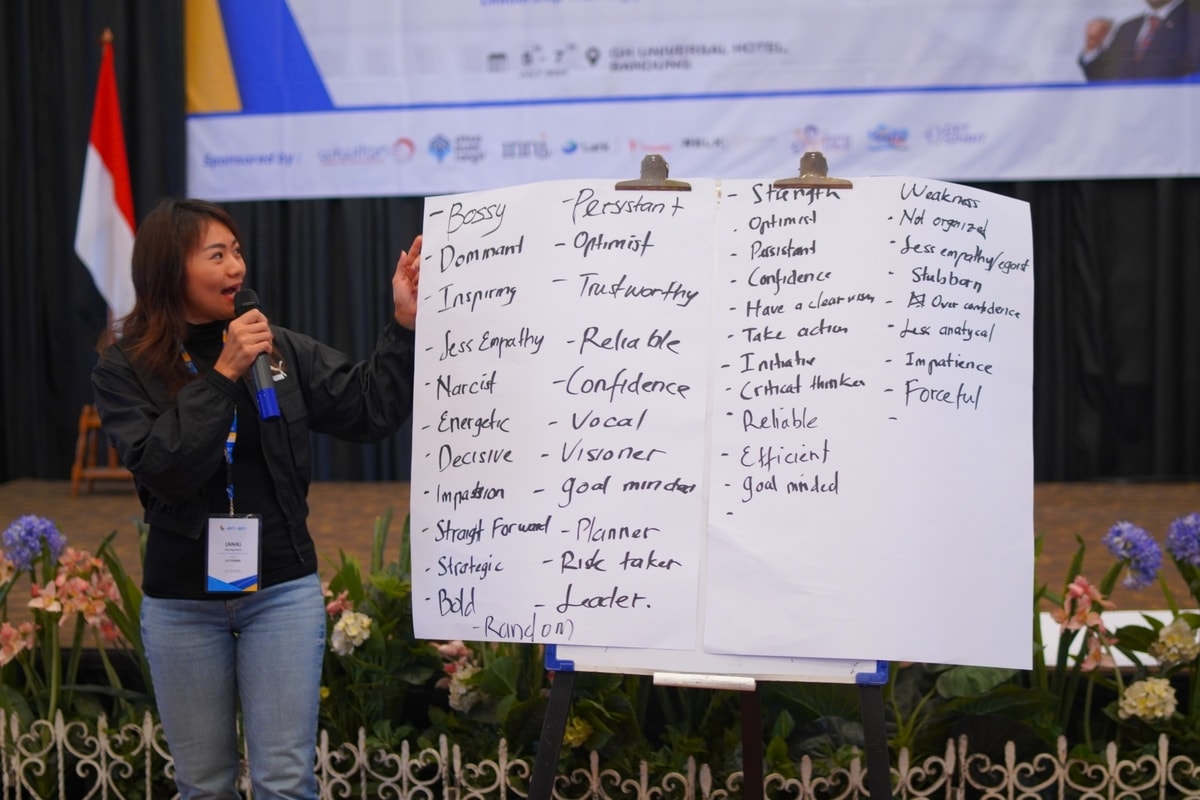 5th - 7th
GH UNIVERSAL HOTEL,
BANDUNG
Sponsored by :
- Bossy
- Dominant
- Inspiring
- Less Empathy
- Narcist
- Energetic
- Decisive
- Impassion
- Straight Forward
- Strategic
- Bold
- Random
- Persistant
- Optimist
- Trustworthy
- Reliable
- Confidence
- Vocal
- Visioner
- goal minded
- Planner
- Risk taker
- Leader.
- Strength
. Optimist
- Persistant
- Confidence
- Have a clear vision
- Take action
- Initiative
- Critical thinker
- Reliable
- Efficient
- goal minded
-
Weakness
- Not organized
- Less empathy/egoist
- Stubborn
- Over confidence
- Less analytical
- Impatience
- Forceful
-
(ANA)